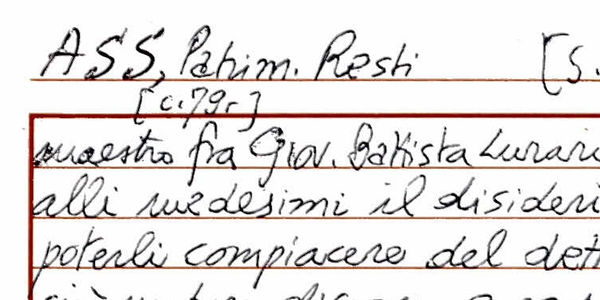 ASS, Patrim. Resti [S.
[c.79r]
maestro fra Giov. Battista Lurar
alli medesimi il disideri
poterli compiacere del dett